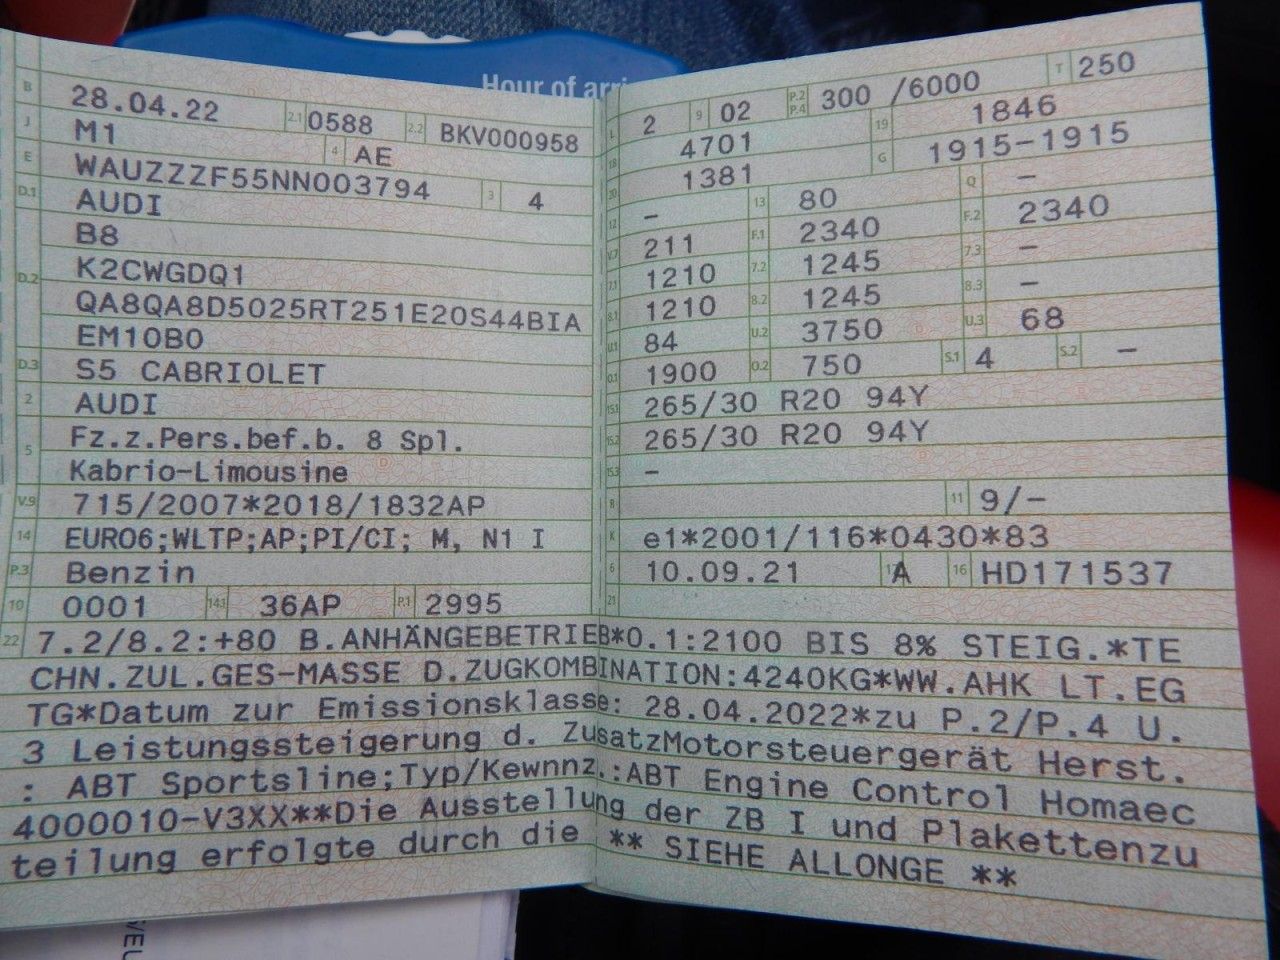 Hour of arri
B 28.04.22 2.1 0588 2.2 BKV000958
J M1 4 AE
E WAUZZZF55NN003794 3 4
D.1 AUDI
B8
D.2 K2CWGDQ1
QA8QA8D5025RT251E20S44BIA
EM10B0
D.3 S5 CABRIOLET
2 AUDI
5 Fz.z.Pers.bef.b. 8 Spl.
Kabrio-Limousine
V.9 715/2007*2018/1832AP
14 EURO6;WLTP;AP;PI/CI; M, N1 I
P.3 Benzin
10 0001 14.1 36AP P.1 2995
L 2 9 02 P.2 P.4 300 /6000 T 250
18 4701 19 1846
20 1381 G 1915-1915
12 - 13 80 Q -
V.7 211 F.1 2340 F.2 2340
7.1 1210 7.2 1245 7.3 -
8.1 1210 8.2 1245 8.3 -
U.1 84 U.2 3750 U.3 68
O.1 1900 O.2 750 S.1 4 S.2 -
15.1 265/30 R20 94Y
15.2 265/30 R20 94Y
15.3 -
R 11 9/-
K e1*2001/116*0430*83
6 10.09.21 17 A 16 HD171537
21
22 7.2/8.2:+80 B.ANHÄNGEBETRIEB*O.1:2100 BIS 8% STEIG.*TE
CHN.ZUL.GES-MASSE D.ZUGKOMBINATION:4240KG*WW.AHK LT.EG
TG*Datum zur Emissionsklasse: 28.04.2022*zu P.2/P.4 U.
3 Leistungssteigerung d. ZusatzMotorsteuergerät Herst.
: ABT Sportsline;Typ/Kewnnz.:ABT Engine Control Homaec
4000010-V3XX**Die Ausstellung der ZB I und Plakettenzu
teilung erfolgte durch die ** SIEHE ALLONGE **